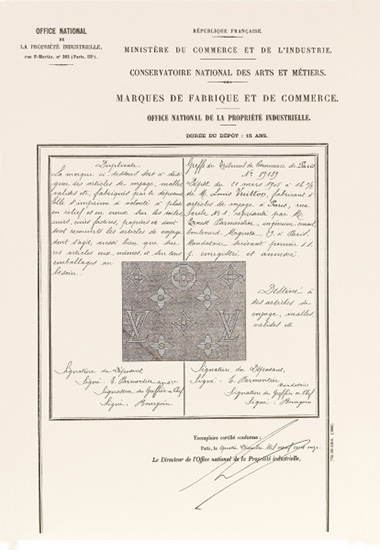 OFFICE NATIONAL
DE
LA PROPRIÉTÉ INDUSTRIELLE,
rue St-Martin, nº 292 (Paris, IIIe).
RÉPUBLIQUE FRANÇAISE.
MINISTÈRE DU COMMERCE ET DE L'INDUSTRIE.
CONSERVATOIRE NATIONAL DES ARTS ET MÉTIERS.
MARQUES DE FABRIQUE ET DE COMMERCE.
OFFICE NATIONAL DE LA PROPRIÉTÉ INDUSTRIELLE.
DURÉE DU DÉPÔT : 15 ANS.
Duplicata
La marque ci dessus sert à dési
gner ses articles de voyage, malles
valises etc. fabriqués par le déposant
Elle s'imprime à volonté à plat
en relief et en creux sur les toiles
cuirs, cuir factice, papiers et dont
sont recouverts les articles de voyage
dont s'agit, aussi bien que sur
ces articles eux-mêmes, et sur leurs
emballages au
besoin.
Greffe du Tribunal de Commerce de Paris
Nº
Dépôt du 21 mars 1905 à
de M. Louis Vuitton, fabricant d'
articles de voyage à Paris, rue
Scribe Nº 1 représenté par M.
Ernest Parmentier, ingénieur-conseil
boulevard Magenta à Paris
Mandataire suivant pouvoir s.s.
p. enregistré et annexé
Destiné à
des articles de
voyage, malles,
valises etc
LV LV
Signature du Déposant,
Signé : E. Parmentier
Signature du Greffier en Chef
Signé : Bourgoin
Signature du Déposant,
Signé : E. Parmentier
Mandataire
Signature du Greffier en Chef
Signé : Bourgoin
Exemplaire certifié conforme :
Paris, le
Le Directeur de l'Office national de la Propriété industrielle,